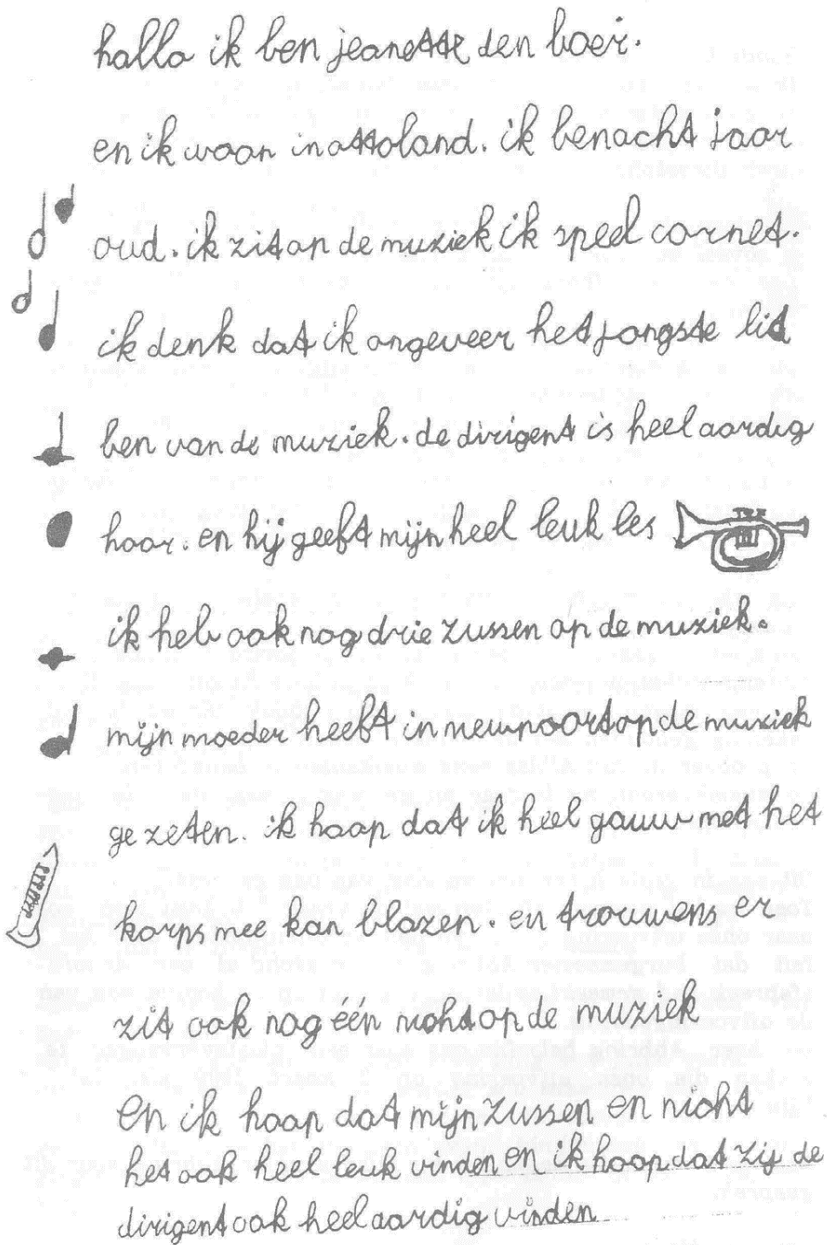 hallo ik ben jeanette den boer.
en ik woon in ottoland. ik ben acht jaar
oud. ik zit op de muziek ik speel cornet.
ik denk dat ik ongeveer het jongste lid
ben van de muziek. de dirigent is heel aardig
hoor. en hij geeft mijn heel leuk les
ik heb ook nog drie zussen op de muziek.
mijn moeder heeft in neuwpoort op de muziek
gezeten. ik hoop dat ik heel gauw met het
korps mee kan blazen. en trouwens er
zit ook nog één nicht op de muziek
en ik hoop dat mijn zussen en nicht
het ook heel leuk vinden en ik hoop dat zij de
dirigent ook heel aardig vinden